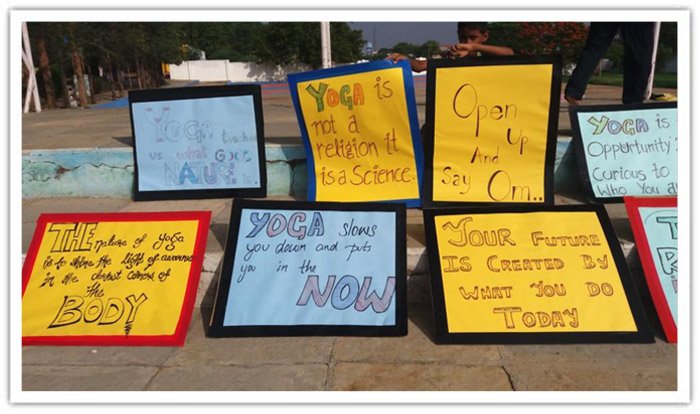 YOGA teaches
us what GOOD
NATURE is.
YOGA is
not a
religion it
is a Science.
Open
Up
And
Say Om..
YOGA is
Opportunity
Curious to
Who You a
THE nature of YOGA
is to shine the light of awareness
in the darkest corners of
the
BODY
YOGA slows
you down and puts
you in the
NOW
YOUR FUTURE
IS CREATED BY
WHAT YOU DO
TODAY